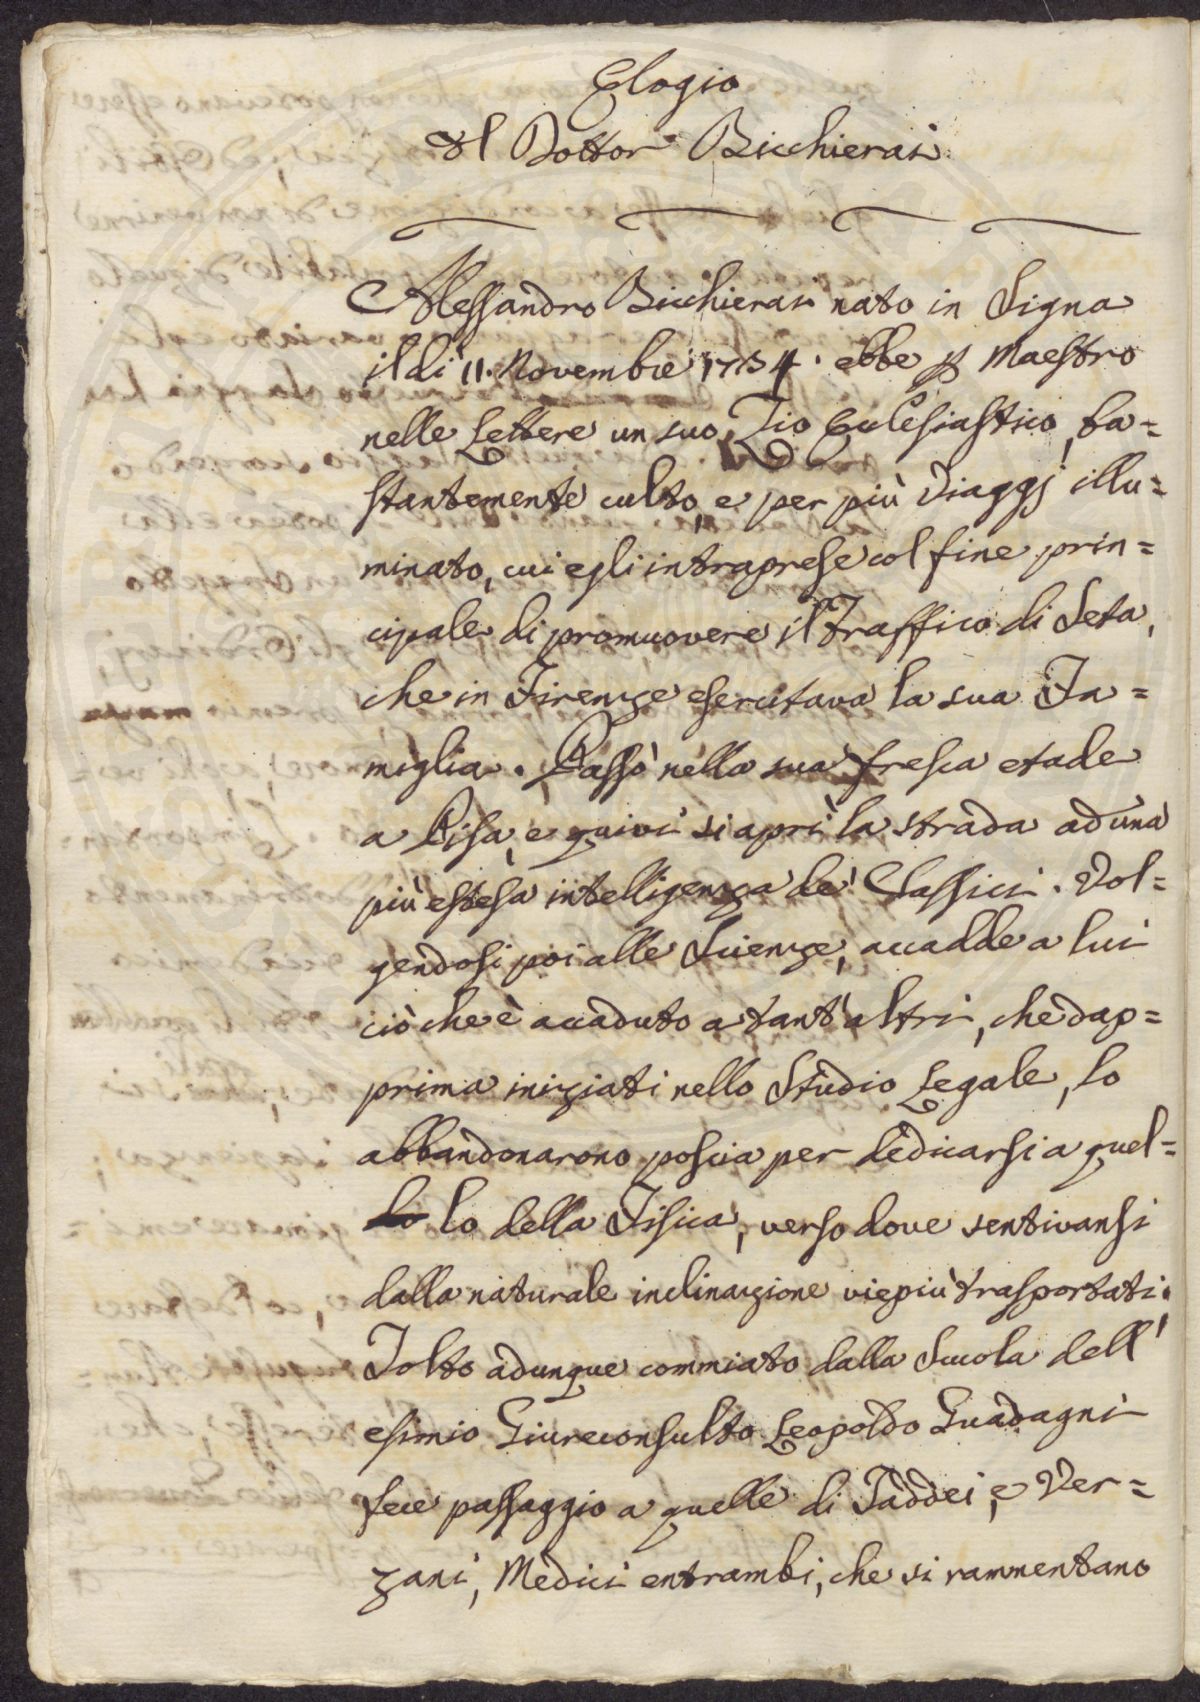 Elogio
Del Dottor Bicchierai
Alessandro Bicchierai nato in Signa
il dì 11. Novembre 1734. ebbe p Maestro
nelle Lettere un suo Zio Ecclesiastico, ba=
stantemente culto, e per più viaggj illu=
minato, cui egli intraprese col fine prin=
cipale di promuovere il Traffico di Seta,
che in Firenze esercitava la sua Fa=
miglia. Passò nella sua fresca etade
a Pisa, e quivi si aprì la strada ad una
più estesa intelligenza de' Classici. Vol=
gendosi poi alle Scienze, accadde a lui
ciò che è accaduto a tant'altri, che dap=
prima iniziati nello Studio Legale, lo
abbandonarono poscia per dedicarsi a quel=
lo lo della Fisica, verso dove sentivansi
dalla naturale inclinazione viepiù trasportati.
Tolto adunque commiato dalla Scuola dell'
esimio Giureconsulto Leopoldo Guadagni
fece passaggio a quelle di Taddei, e Ver=
zani, Medici entrambi, che si rammentano